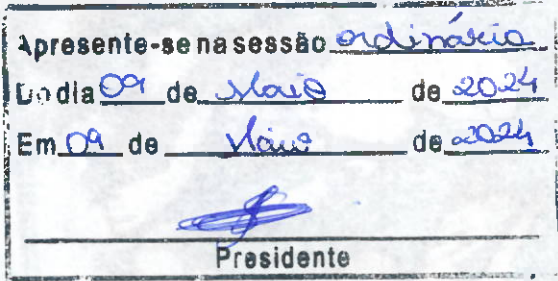 Apresente-se na sessão ordinária
Do dia 09 de Maio de 2024
Em 09 de Maio de 2024
Presidente